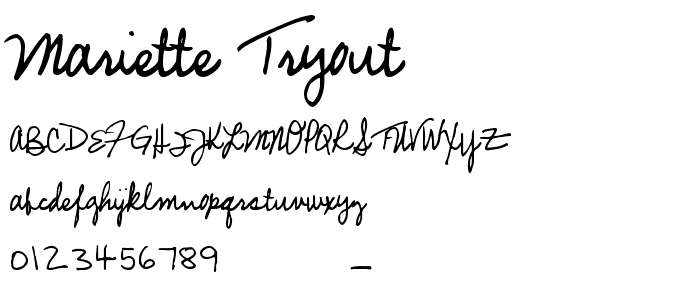 Mariette Tryout
ABCDEFGHIJKLMNOPQRSTUVWXYZ
abcdefghijklmnopqrstuvwxyz
0123456789 _